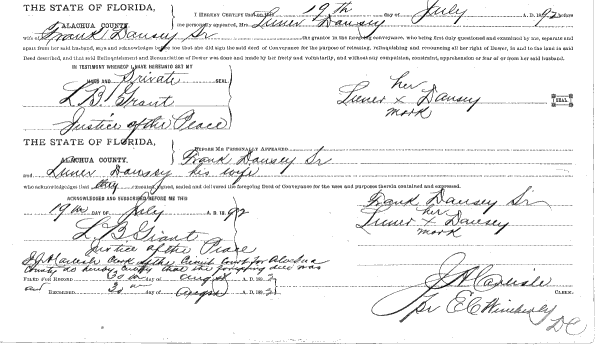 THE STATE OF FLORIDA,
ALACHUA COUNTY.
I HEREBY CERTIFY, That on this 19th day of July A. D. 1892 before
me personally appeared, Mrs. Luner Dansey
wife of Frank Dansey Sr the grantor in the foregoing conveyance, who being first duly questioned and examined by me, separate and
apart from her said husband, says and acknowledges before me that she did sign the said deed of Conveyance for the purpose of releasing, relinquishing and renouncing all her right of Dower, in and to the land in said
Deed described, and that said Relinquishment and Renunciation of Dower was done and made by her freely and voluntarily, and without any compulsion, constraint, apprehension or fear of or from her said husband.
IN TESTIMONY WHEREOF I HAVE HEREUNTO SET MY
HAND AND Private SEAL
L. B. Grant
Justice of the Peace
her
Luner x Dansey
mark
SEAL
THE STATE OF FLORIDA,
ALACHUA COUNTY.
BEFORE ME PERSONALLY APPEARED Frank Dansey Sr
and Luner Dansey his wife
who acknowledged that they signed, sealed and delivered the foregoing Deed of Conveyance for the uses and purposes therein contained and expressed.
ACKNOWLEDGED AND SUBSCRIBED BEFORE ME THIS
19th DAY OF July A. D. 1892
L. B. Grant
Justice of the Peace
Frank Dansey Sr
her
Luner x Dansey
mark
I J A Carlisle Clerk of the Circuit Court for Alachua
County do hereby certify that the foregoing deed was
FILED FOR RECORD 30 day of August A. D. 189
and RECORDED 30 day of August A. D. 189
J A Carlisle
CLERK.
pr E C Wimberly
DC